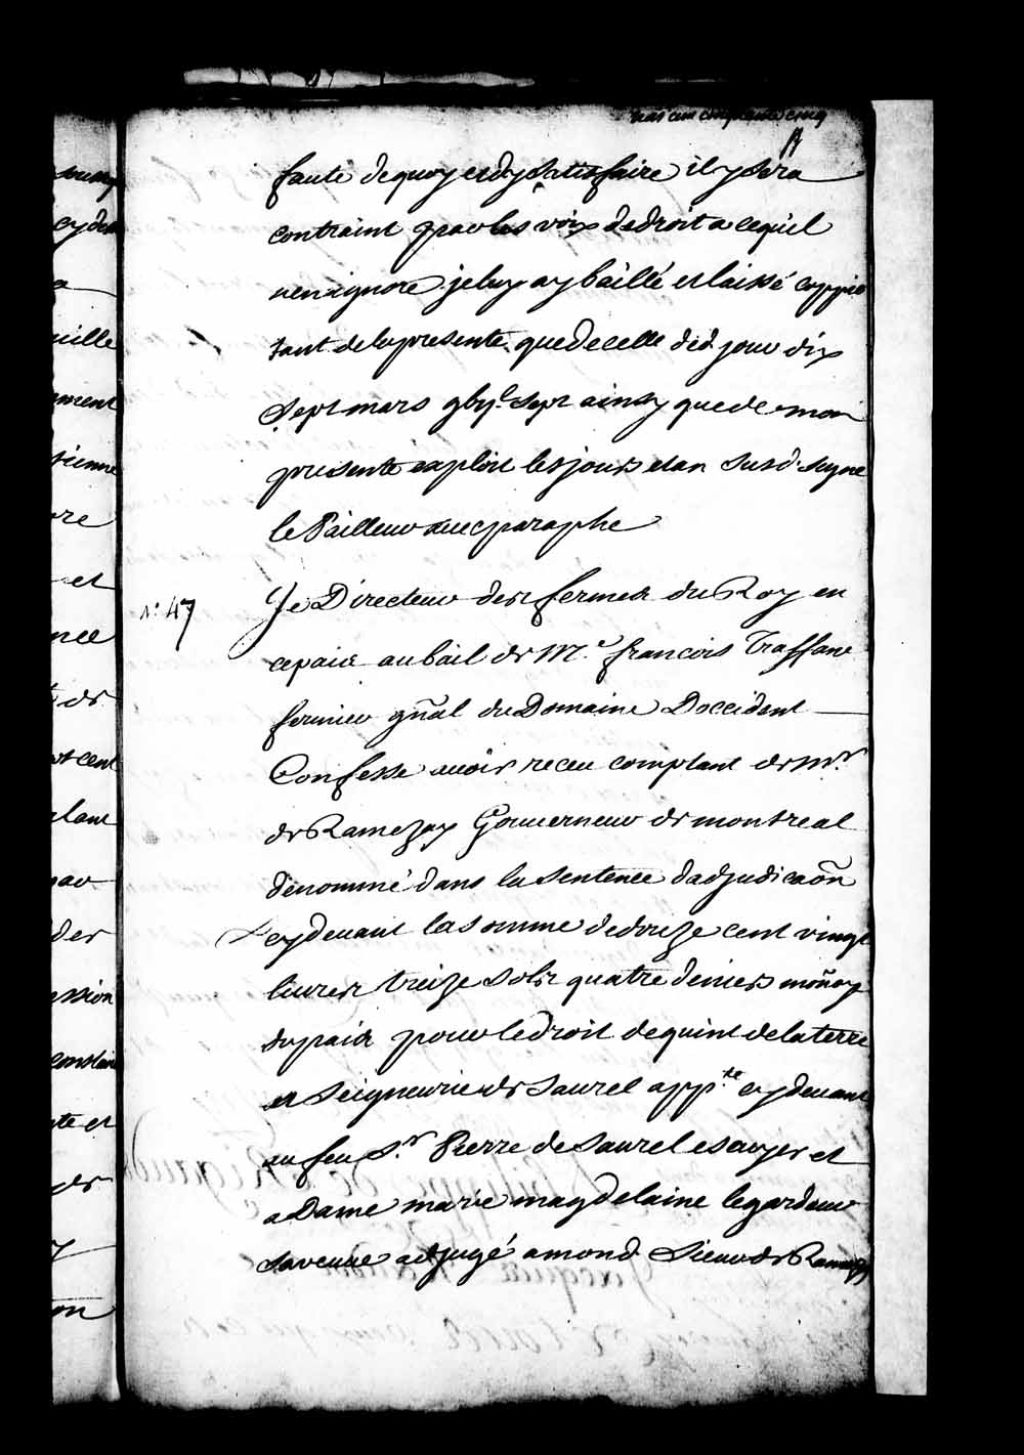 trois cent cinquante cinq
faute dequoy et dy satisfaire il y sera
contraint par les voix dedroit a cequil
nen ignore jeluy ay baillé et laissé coppie
tant dela presente quedecelle dud jour dix
sept mars gbij.c sept ainsy que de mon
presente exploit les jours et an susd. signe
le Pailleur avec paraphe
N.o 47
Je Directeur des fermes du Roy en
cepais au bail de M.e francois Traffane
fermier gnãl du Domaine Doccident
Confesse avoir receu comptant de Mr.
de Ramezay Gouverneur de montreal
denommé dans la sentence dadjudicaõn
cydevant la somme dedouze cent vingt
livres treize sols quatre deniers moñoy
dupais pour ledroit dequint delaterre
et seigneurie de Saurel app.te cydevant
au feu S.r Pierre de Saurel escuyer et
a Dame marie magdelaine legardeur
saveuve adjugé amond. Sieur de Ramezay
ille
ment
sienne
re
et
nce
de
cent
lant
der
ission
te et
de
on